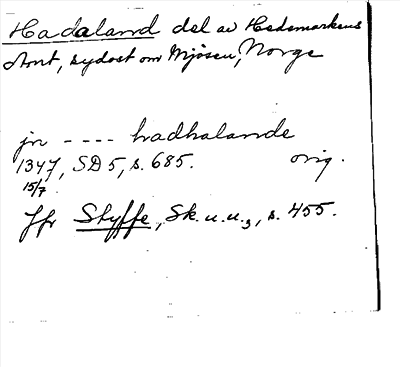 Hadaland del av Hedemarkens
Amt, sydost om Mjösen, Norge
jn - - - - hadhalande
1347, SD 5, s. 685. orig.
15/7
Jfr Styffe, Sk. u. u.3, s. 455.